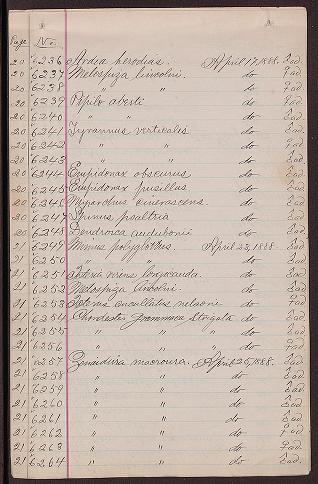 Page No.
20 6236 Ardea herodias. April 17, 1888. Ead
20 6237 Melospiza lincolni. do Fad
20 6238 " " do Ead.
20 6239 Pipilo aberti do Ead.
20 6240 " " do Ead.
20 6241 Tyrannus verticalis do Ead.
20 6242 " " do Ead.
20 6243 " " do Ead.
20 6244 Empidonax obscurus do Ead.
20 6245 Empidonax pusillus do Ead.
20 6246 Myiarchus cinerascens. do Ead.
20 6247 Spinus psaltria do Ead.
20 6248 Dendroica audubonii do Ead.
21 6249 Mimus polyglottus. April 23, 1888 Ead.
21 6250 " " do Ead.
21 6251 Icteria virens longicauda. do Ead.
21 6252 Melospiza lincolni. do Ead.
21 6253 Icterus cucullatus nelsoni do Fad
21 6254 Chondestes grammaca strigata do Ead.
21 6255 " " " do Ead.
21 6256 " " " do Ead.
21 6257 Zenaidura macroura. April 25, 1888. Ead
21 6258 " " do Ead
21 6259 " " do Ead
21 6260 " " do Ead
21 6261 " " do Ead.
21 6262 " " do Fad
21 6263 " " do Fad.
21 6264 " " do Ead.